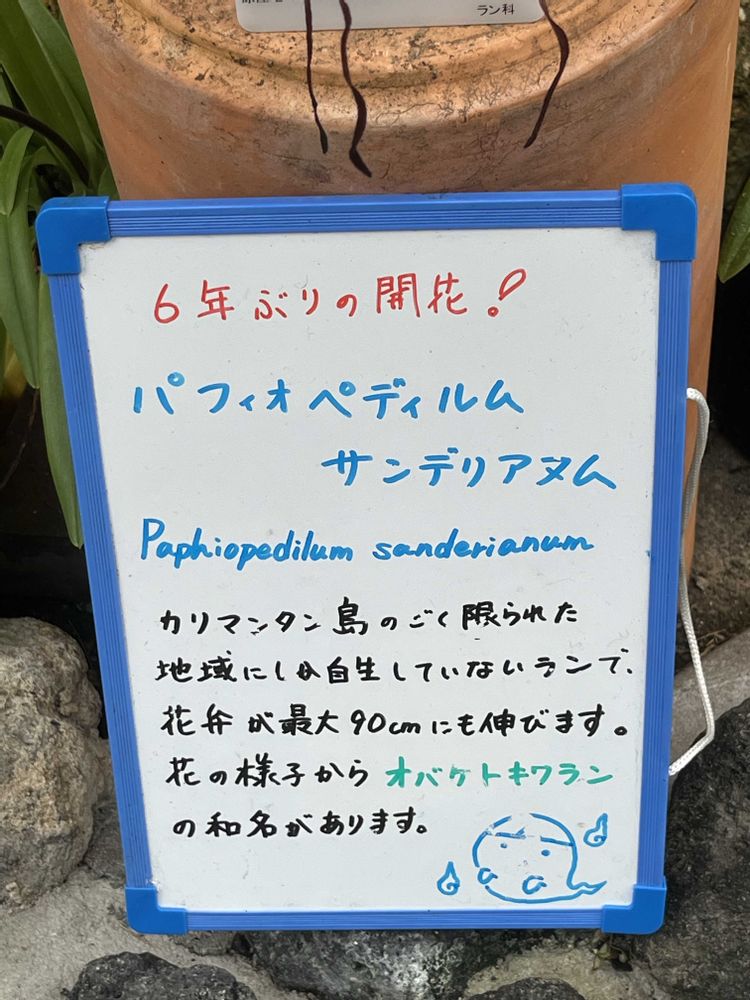 ラン科
6年ぶりの開花!
パフィオペディルム
サンデリアヌム
Paphiopedilum sanderianum
カリマンタン島のごく限られた
地域にしか自生していないランで、
花弁が最大90cmにも伸びます。
花の様子からオバケトキワラン
の和名があります。